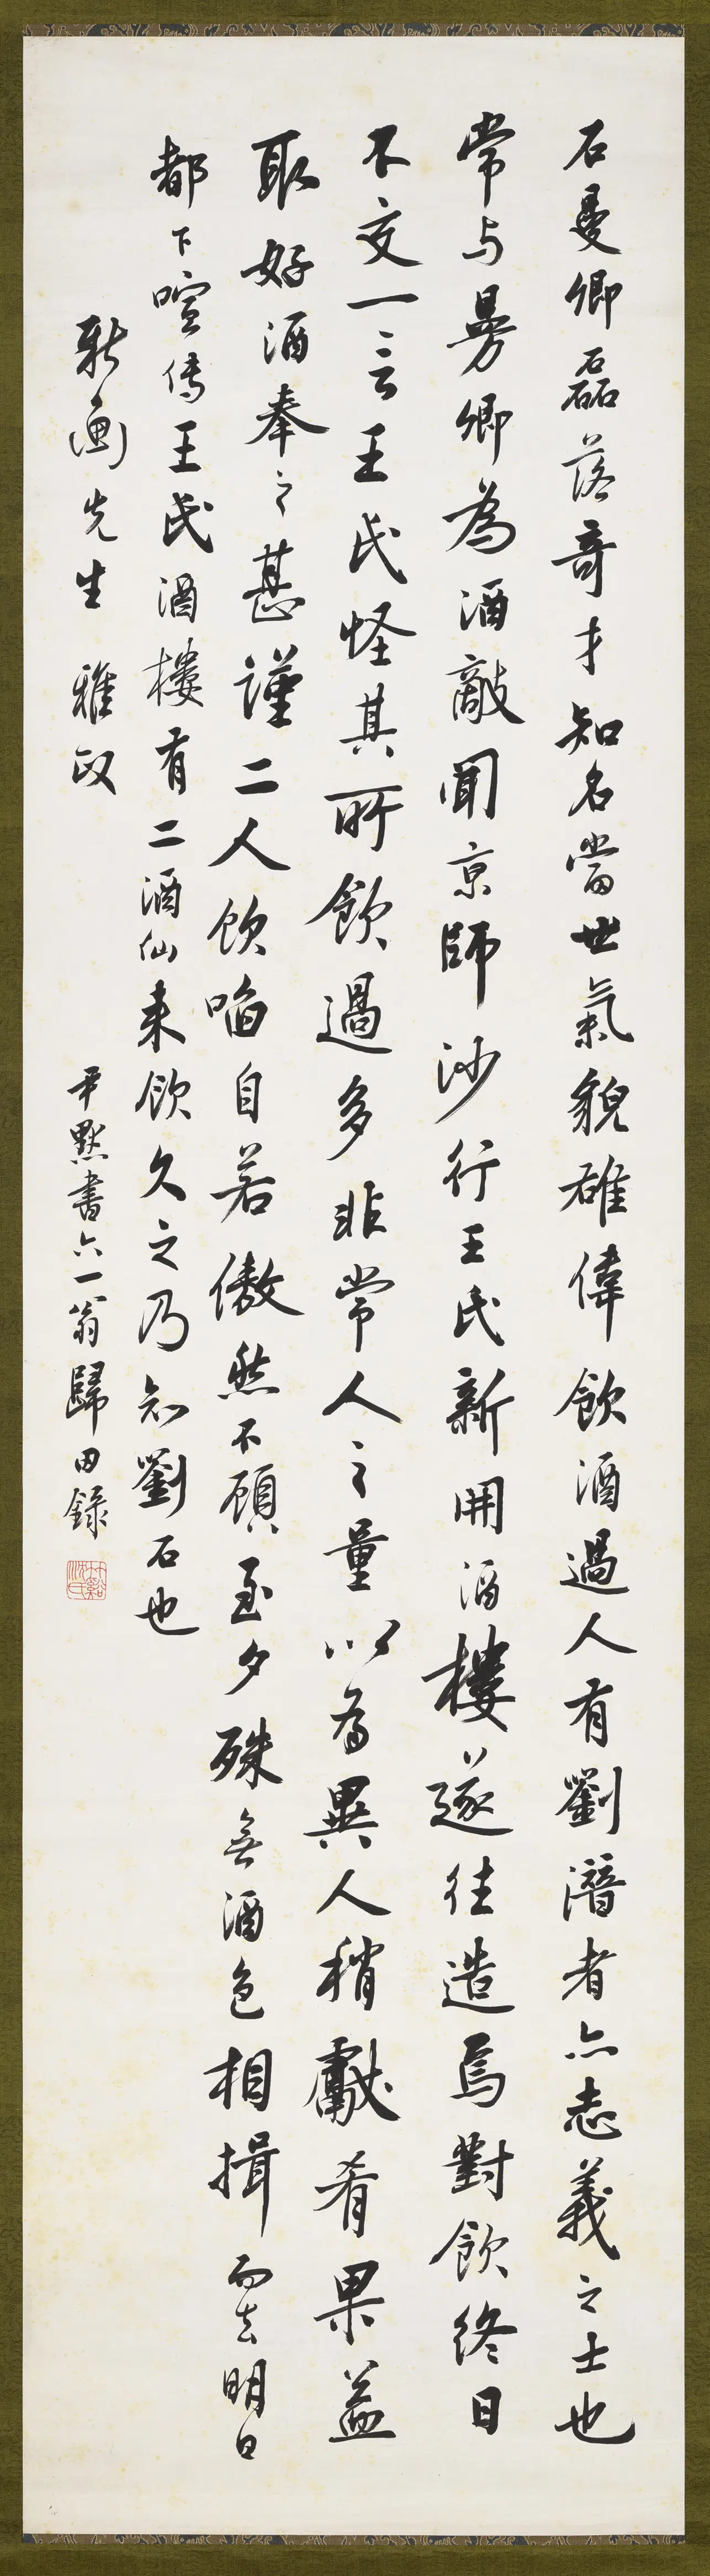 石曼卿磊落奇才知名當世氣貌雄偉飲酒過人有劉潛者亦志義之士也
常与曼卿為酒敵聞京師沙行王氏新開酒樓遂往造焉對飲終日
不交一言王氏怪其所飲過多非常人之量以為異人稍獻肴果益
取好酒奉之甚謹二人飲啗自若傲然不顧至夕殊無酒色相揖而去明日
都下喧傳王氏酒樓有二酒仙来飲久之乃知劉石也
畫先生 雅政
尹默書六一翁歸田錄
竹谿沈氏